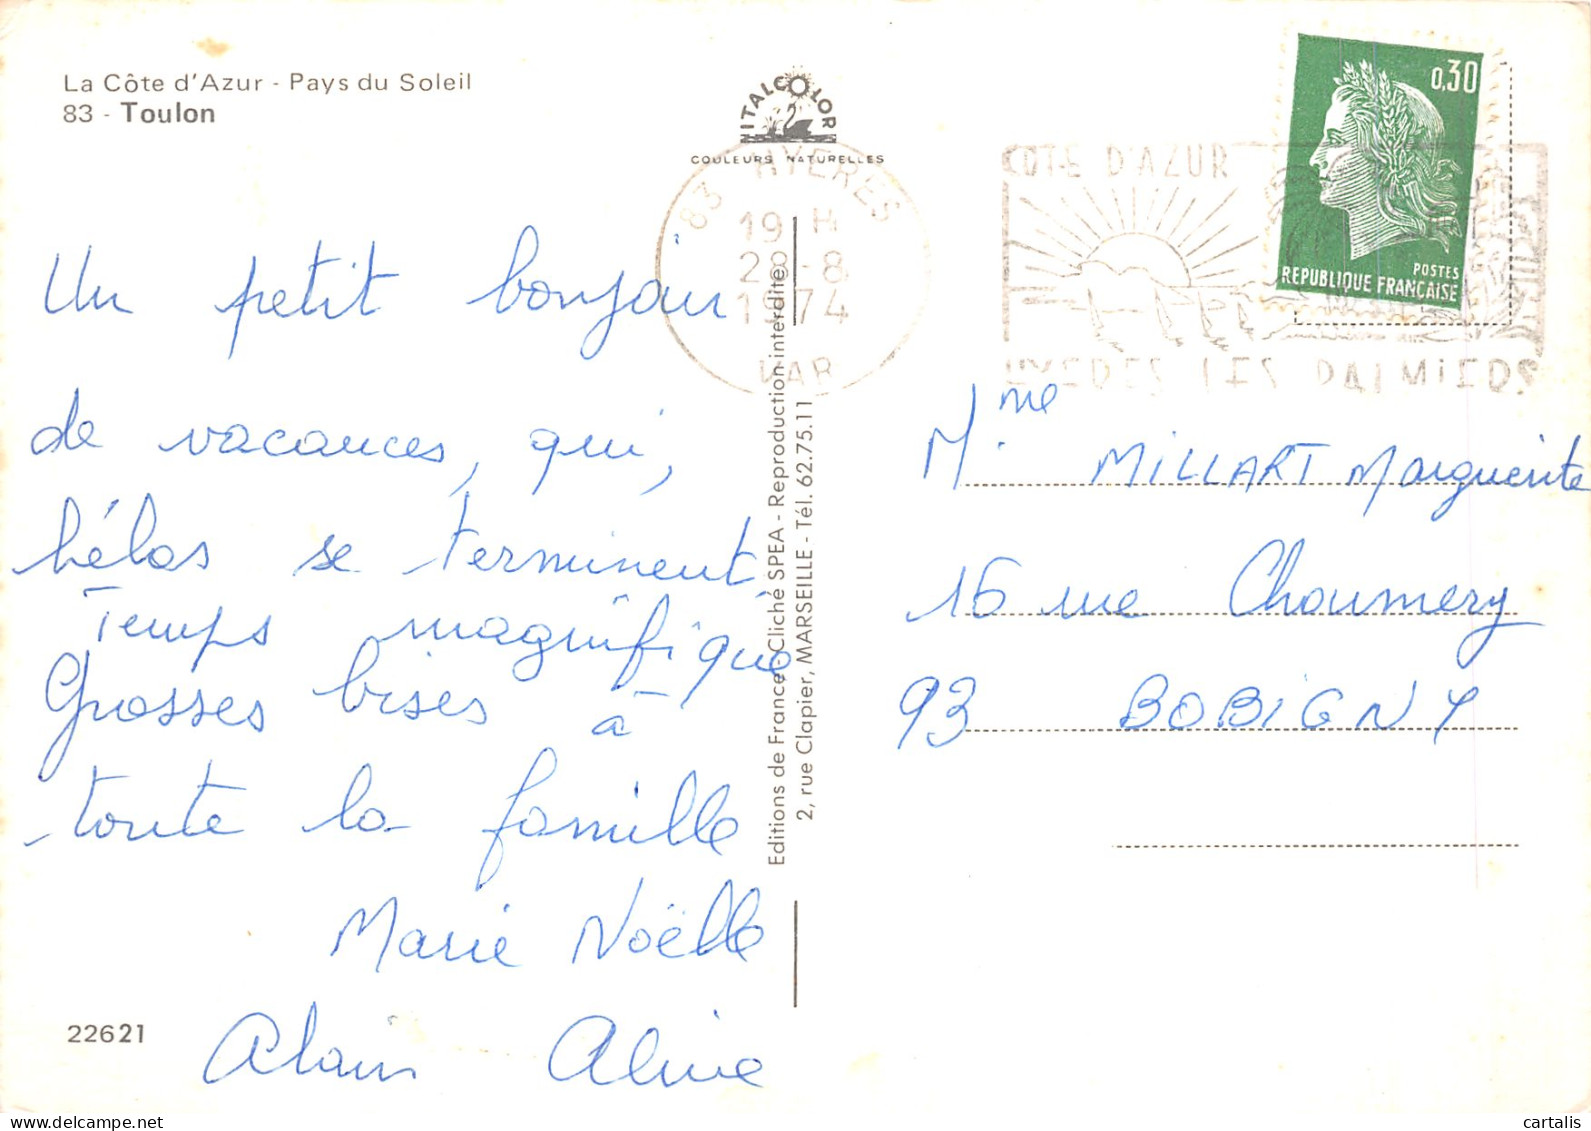 La Côte d'Azur - Pays du Soleil
83 - Toulon
ITALCOLOR
COULEURS NATURELLES
83 HYERES
19 H
28-8
1974
VAR
COTE D'AZUR
HYERES LES PALMIERS
0,30
POSTES
REPUBLIQUE FRANCAISE
Un petit bonjour
de vacances, qui,
hélas se terminent
Temps magnifique
Grosses bises à
toute la famille
Marie Noëlle
Alain Aline
22621
Editions de France, Cliché SPEA - Reproduction interdite
2, rue Clapier, MARSEILLE - Tél. 62.75.11
Mme MILLART Marguerite
16 rue Choumery
93 BOBIGNY
cartalis
delcampe.net